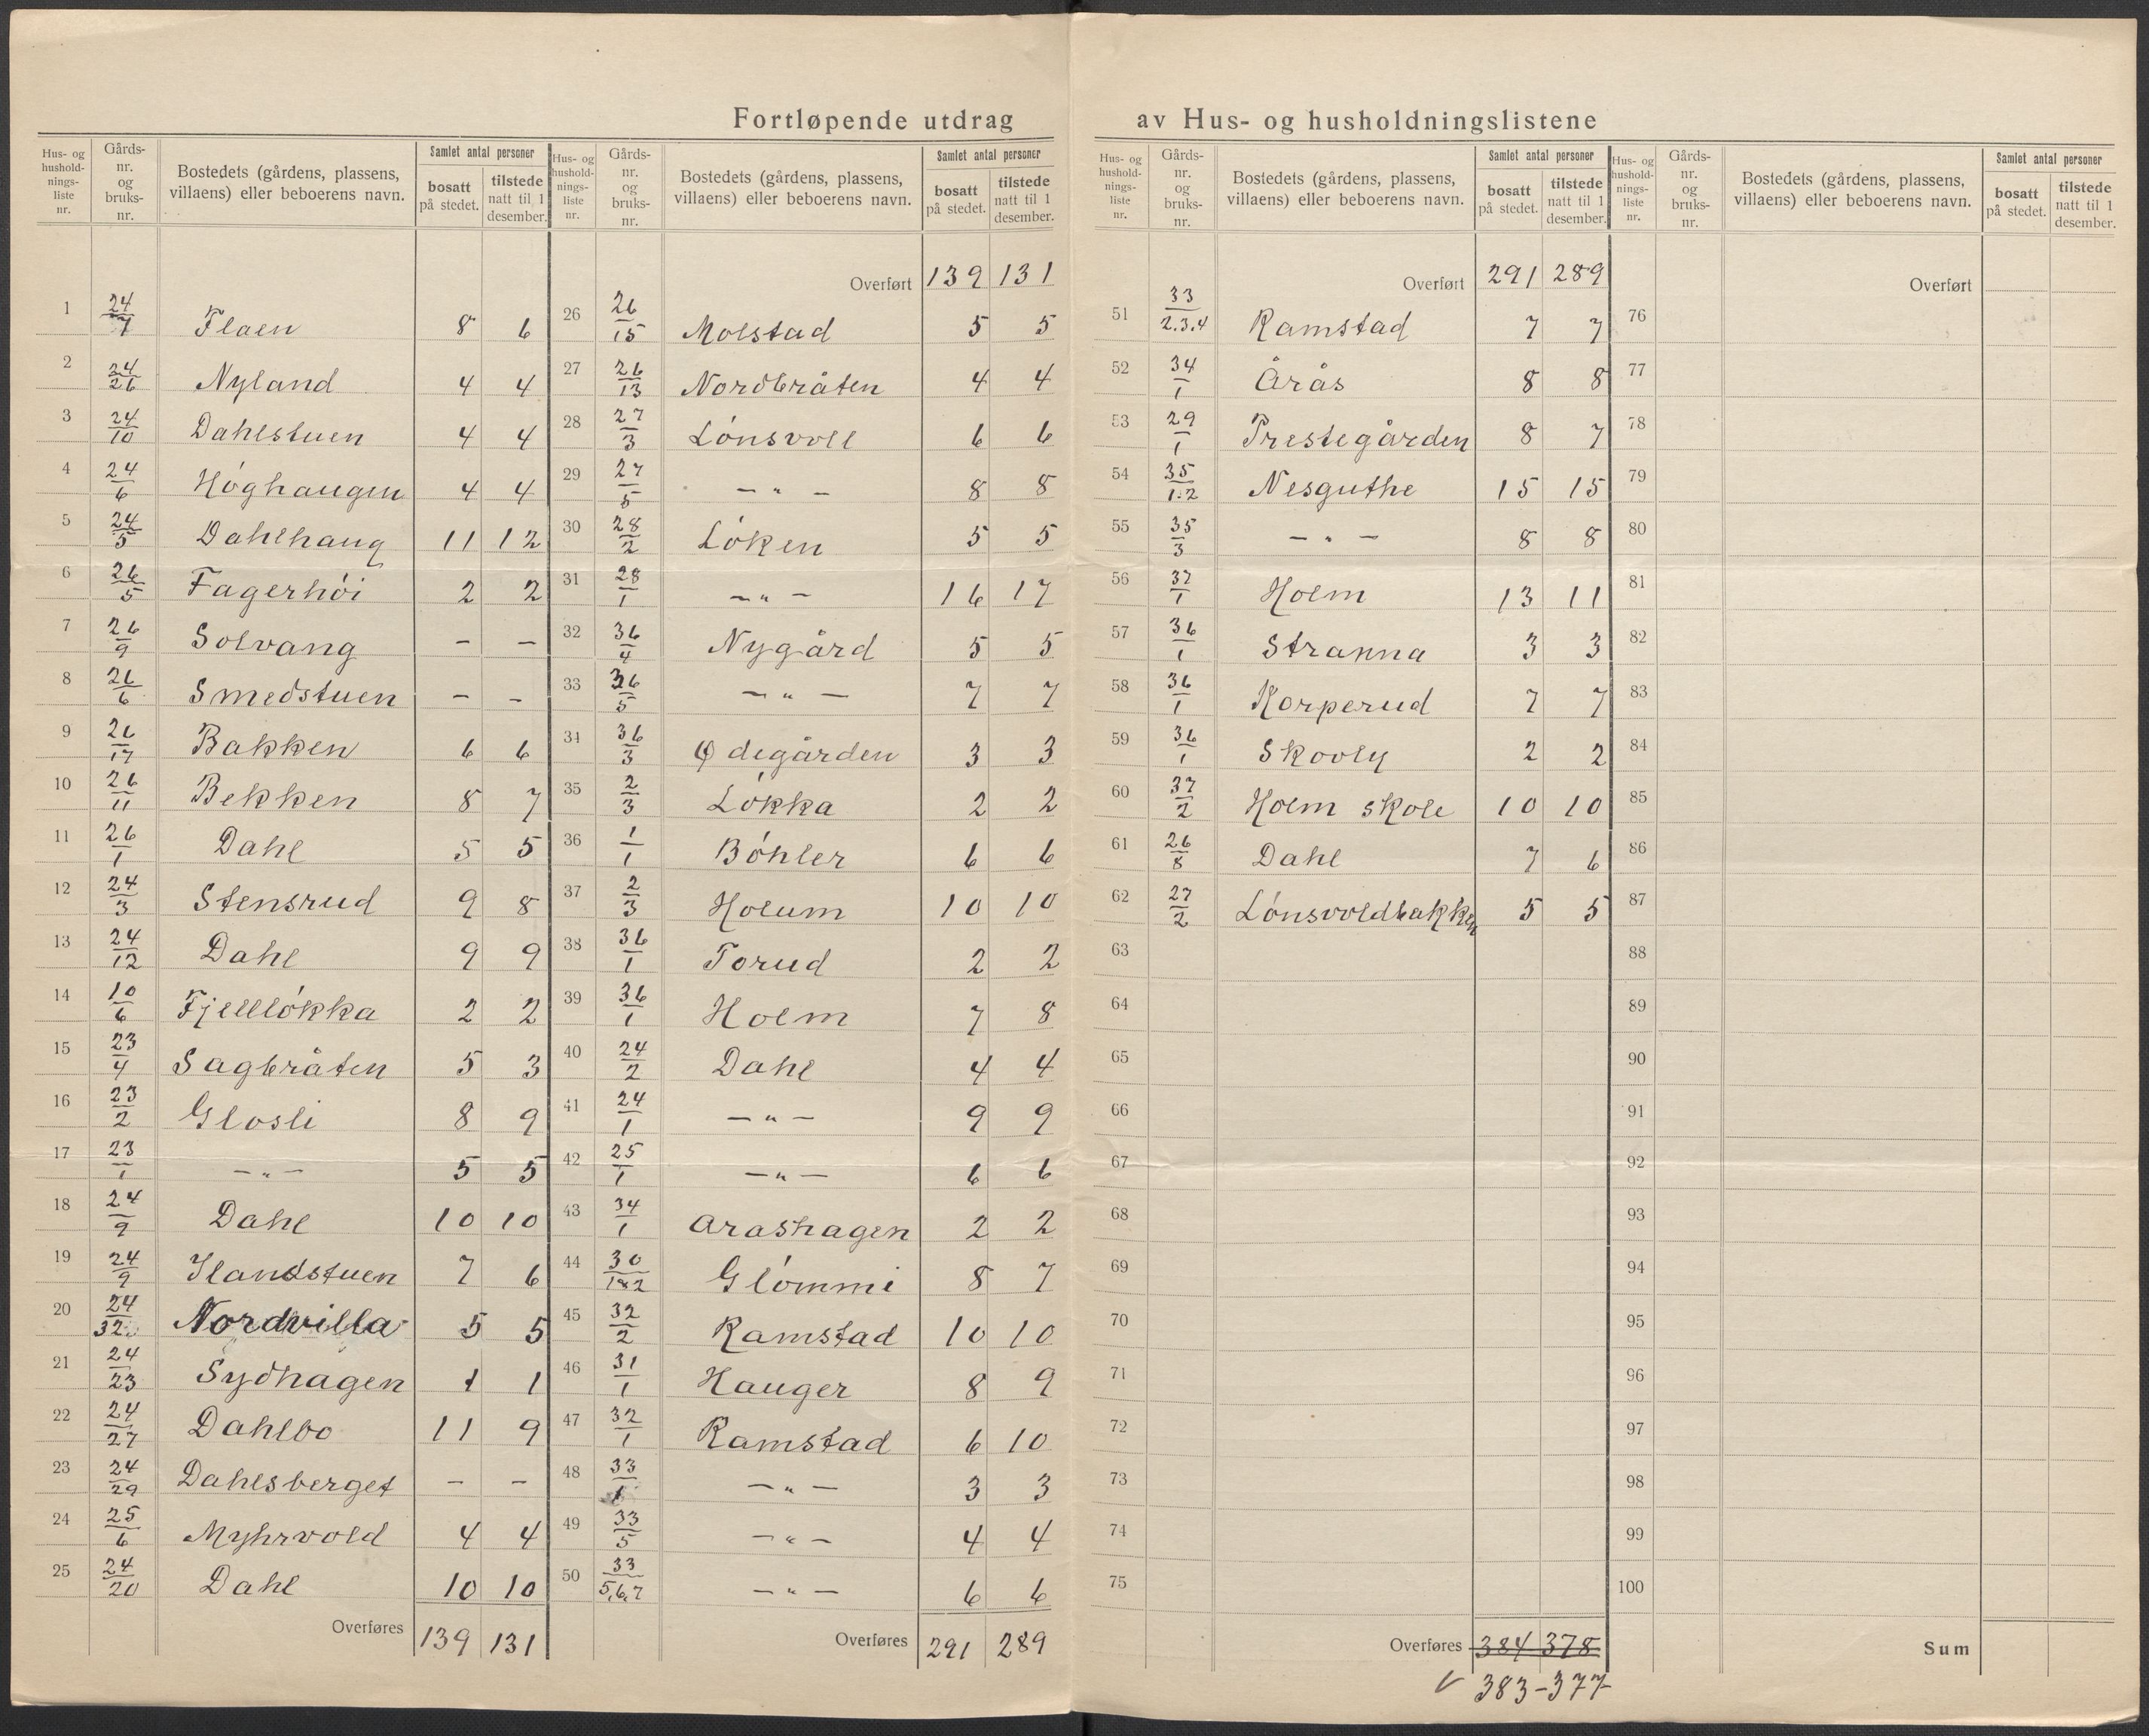 Fortløpende utdrag av Hus- og husholdningslistene
Hus- og hushold-nings-liste nr. | Gårds-nr. og bruks-nr. | Bostedets (gårdens, plassens, villaens) eller beboerens navn. | Samlet antal personer | bosatt på stedet. | tilstede natt til 1 desember.
1 24/7 Flaen 8 6
2 24/26 Nyland 4 4
3 24/10 Dahlstuen 4 4
4 24/6 Høghaugen 4 4
5 24/5 Dahlhaug 11 12
6 26/5 Fagerhøi 2 2
7 26/9 Solvang – –
8 26/6 Smedstuen – –
9 26/17 Bakken 6 6
10 26/11 Bekken 8 7
11 26/1 Dahl 5 5
12 24/3 Stensrud 9 8
13 24/12 Dahl 9 9
14 10/6 Fjelløkka 2 2
15 23/4 Sagbråten 5 3
16 23/2 Glosli 8 9
17 23/1 – " – 5 5
18 24/9 Dahl 10 10
19 24/9 Ilandstuen 7 6
20 24/32 Nordvilla 5 5
21 24/23 Sydhagen 1 1
22 24/27 Dahlbo 11 9
23 24/29 Dahlsberget – –
24 25/6 Myhrvold 4 4
25 24/20 Dahl 10 10
Overføres 139 131
Hus- og hushold-nings-liste nr. | Gårds-nr. og bruks-nr. | Bostedets (gårdens, plassens, villaens) eller beboerens navn. | Samlet antal personer | bosatt på stedet. | tilstede natt til 1 desember.
Overført 139 131
26 26/15 Molstad 5 5
27 26/13 Nordbråten 4 4
28 27/3 Lønsvoll 6 6
29 27/5 – " – 8 8
30 28/2 Løken 5 5
31 28/1 – " – 16 17
32 36/4 Nygård 5 5
33 36/5 – " – 7 7
34 36/3 Ødegården 3 3
35 2/3 Løkka 2 2
36 1/1 Bøhler 6 6
37 2/3 Holum 10 10
38 36/1 Torud 2 2
39 36/1 Holm 7 8
40 24/2 Dahl 4 4
41 24/1 – " – 9 9
42 25/1 – " – 6 6
43 34/1 Aråshagen 2 2
44 30/1&2 Glømmi 8 7
45 32/2 Ramstad 10 10
46 31/1 Hauger 8 9
47 32/1 Ramstad 6 10
48 33/1 – " – 3 3
49 33/5 – " – 4 4
50 33/5,6,7 – " – 6 6
Overføres 291 289
Hus- og hushold-nings-liste nr. | Gårds-nr. og bruks-nr. | Bostedets (gårdens, plassens, villaens) eller beboerens navn. | Samlet antal personer | bosatt på stedet. | tilstede natt til 1 desember.
Overført 291 289
51 33/2.3.4 Ramstad 7 7
52 34/1 Årås 8 8
53 29/1 Prestegården 8 7
54 35/1.2 Nesguthe 15 15
55 35/3 – " – 8 8
56 37/1 Holm 13 11
57 36/1 Stranna 3 3
58 36/1 Korperud 7 7
59 36/1 Skovly 2 2
60 37/2 Holm skole 10 10
61 26/8 Dahl 7 6
62 27/2 Lønsvoldbakken 5 5
63
64
65
66
67
68
69
70
71
72
73
74
75
Overføres 384 378
✓ 383-377
Hus- og hushold-nings-liste nr. | Gårds-nr. og bruks-nr. | Bostedets (gårdens, plassens, villaens) eller beboerens navn. | Samlet antal personer | bosatt på stedet. | tilstede natt til 1 desember.
Overført
76
77
78
79
80
81
82
83
84
85
86
87
88
89
90
91
92
93
94
95
96
97
98
99
100
Sum